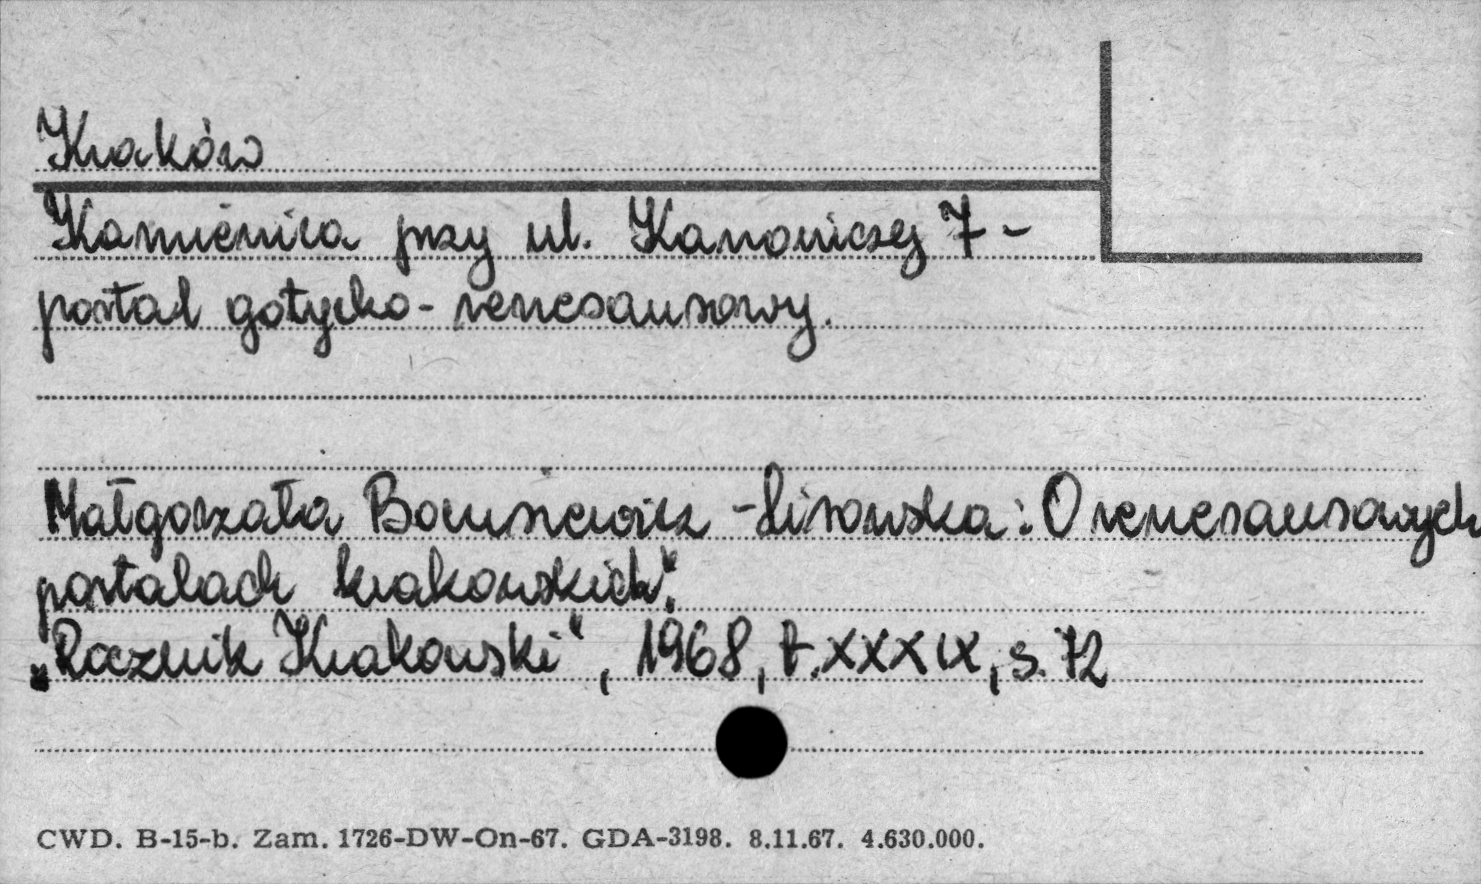 Kraków
Kamienica przy ul. Kanoniczej 7 -
portal gotycko-renesansowy.
Małgorzata Borusiewicz -Lisowska: O renesansowych
portalach krakowskich".
„Rocznik Krakowski", 1968, t. XXXIX, s. 72
CWD. B-15-b. Zam. 1726-DW-On-67. GDA-3198. 8.11.67. 4.630.000.